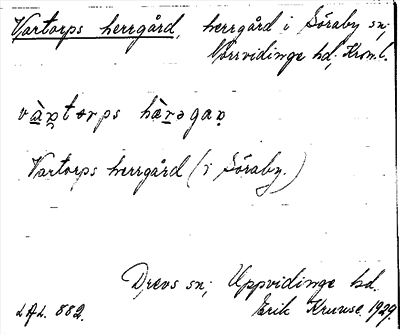 Vartorps herrgård, herrgård i Söraby sn;
Norrvidinge hd, Kron. l.
vàṉtorps hàrəgaṉ
Vartorps herrgård (i Söraby.)
Drevs sn; Uppvidinge hd.
LAL. 882. Erik Kruuse 1929.